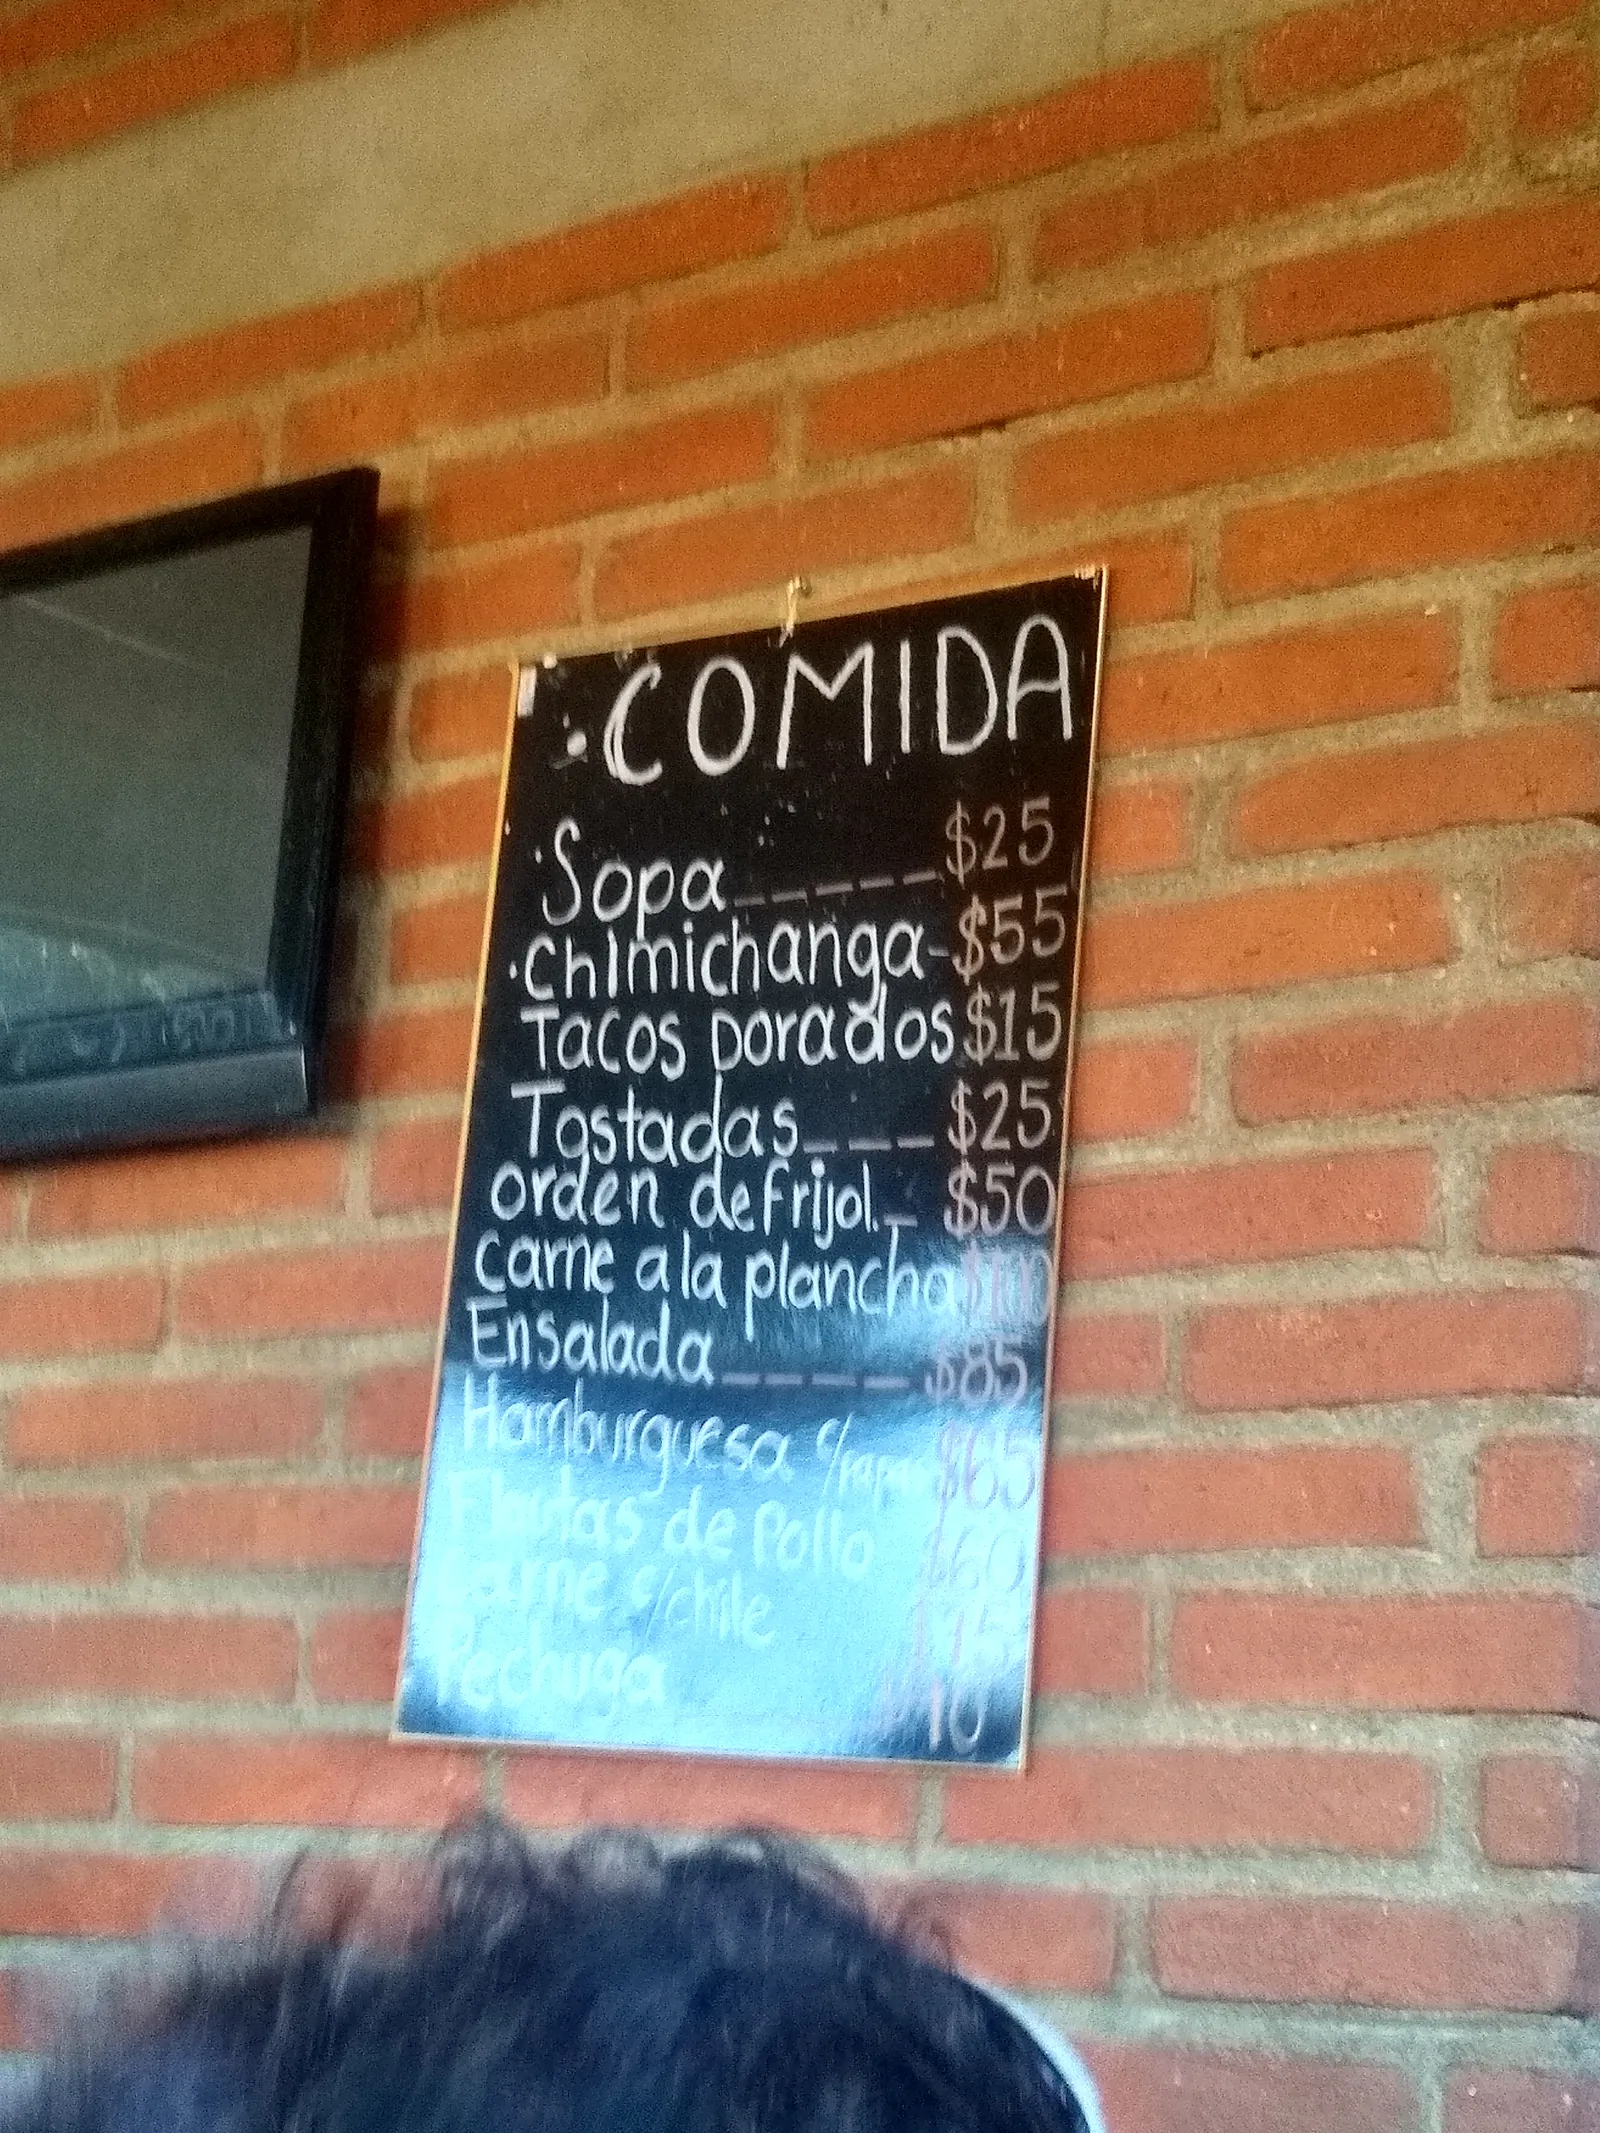 COMIDA
Sopa_____$25
Chimichanga-$55
Tacos Dorados $15
Tostadas___$25
orden de Frijol._ $50
carne a la plancha $100
Ensalada_____$85
Hamburguesa c/papas $65
Flautas de Pollo $60
Carne c/chile
Pechuga